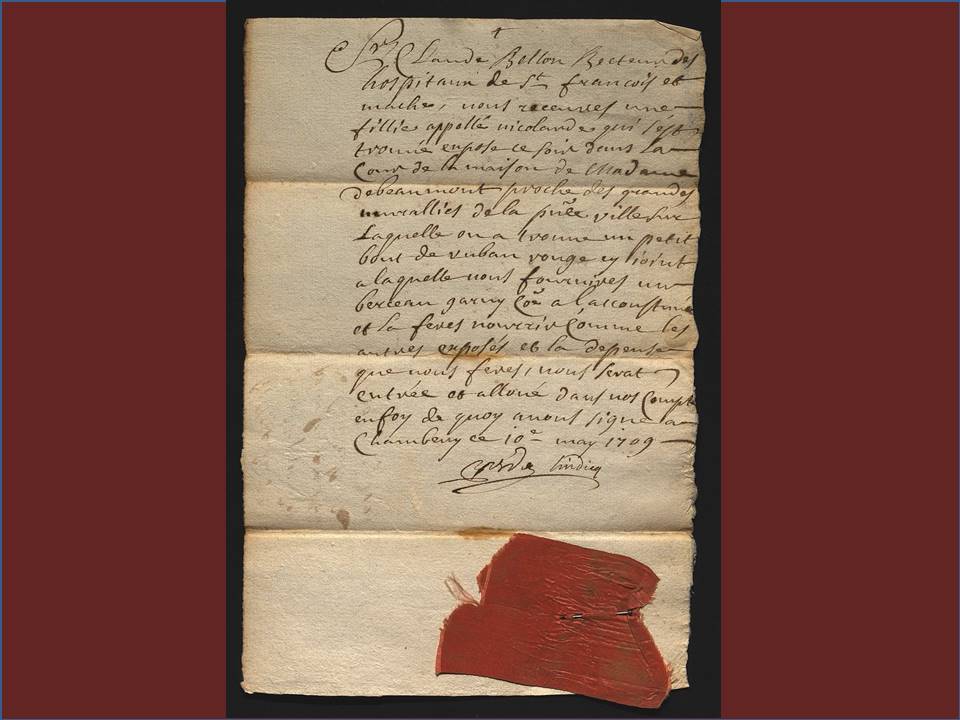 Sr Claude Bellon Recteur des
hospitaux de St françois et
mache, nous receures une
fillie appellé nicolande qui sest
trouué expose ce soir dans la
Cour de la maison de Madame
debeaumont proche des grandes
murallies de la pñte ville sur
Laquelle on a trouue un petit
bout de ruban rouge cy ioint
a laquelle vous fournires un
berceau garny Coê a laccoustumé
et la feres nourrir Comme les
autres exposés et la depense
que vous feres, vous serat
entrée et alloué dans vos Compt
enfoy de quoy auons signe a
Chambery ce 10e may 1709
sindicq